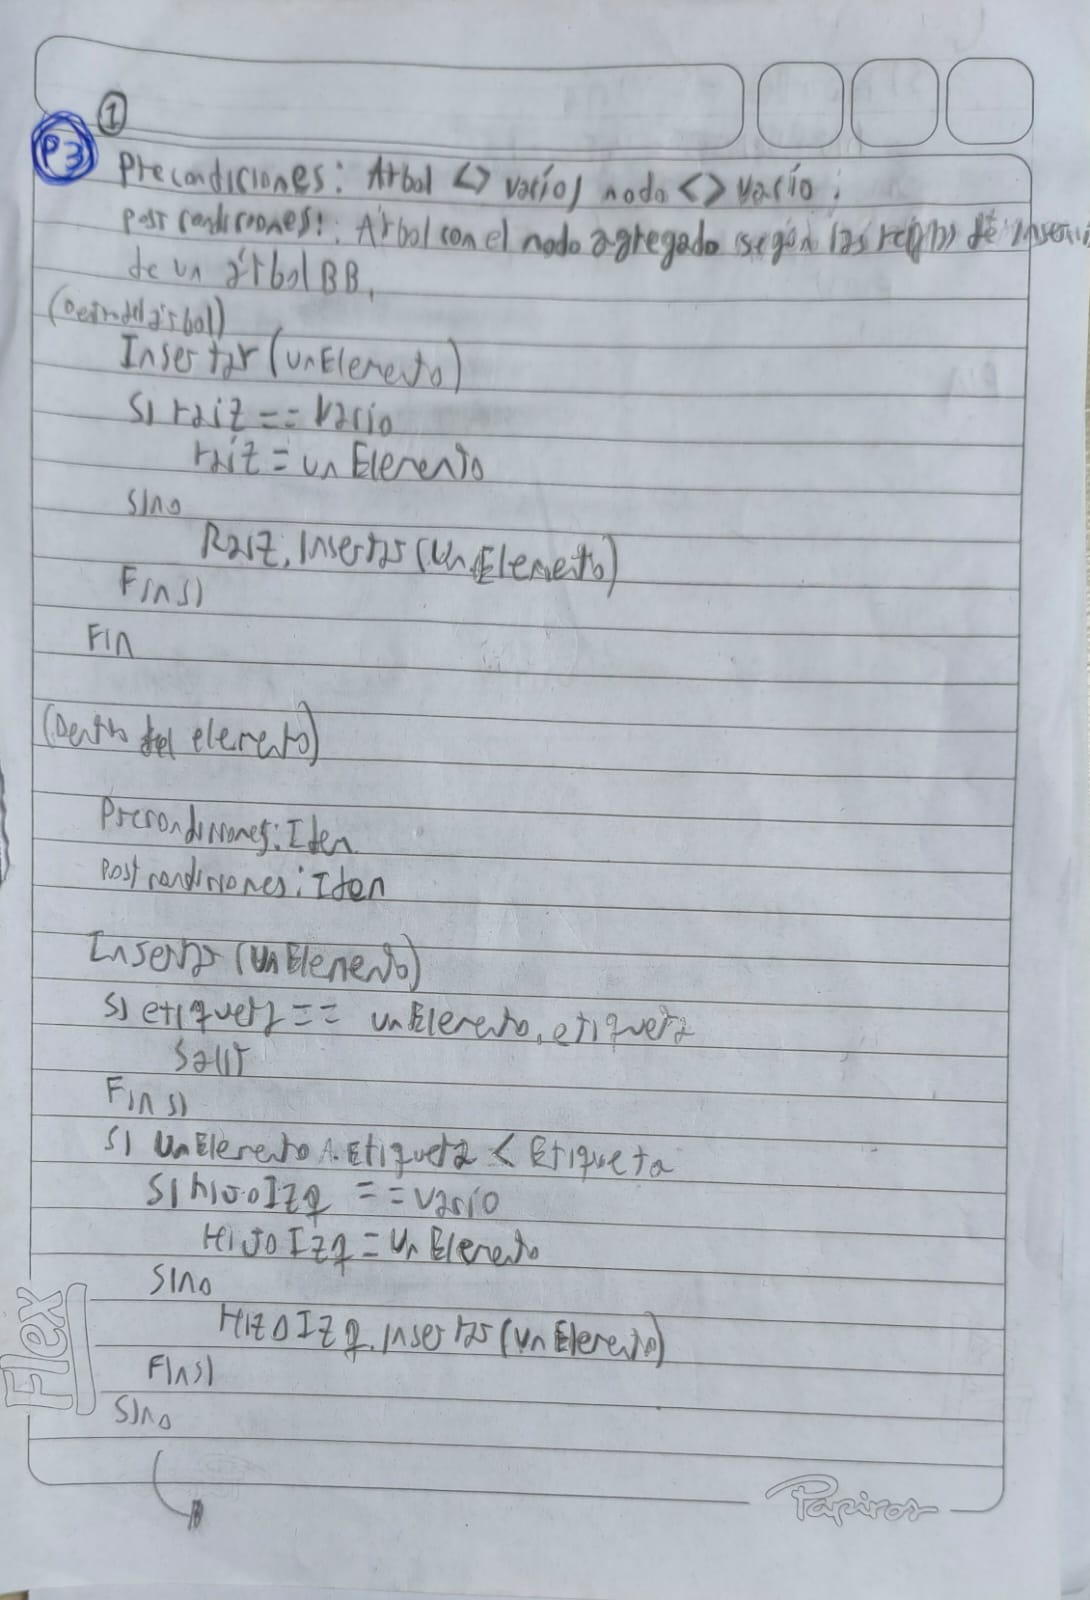 1
P3
Precondiciones: Árbol <> vacío, nodo <> vacío.
Postcondiciones: Árbol con el nodo agregado según las reglas de
de un árbol BB.
(Dentro del árbol)
Insertar (unElemento)
Si raiz == Vacio
raíz = unElemento
Sino
Raiz.Insertar (UnElemento)
Fin si
Fin
(Dentro del elemento)
Precondiciones: Iden
Postcondiciones: Iden
Insertar (UnElemento)
Si etiqueta == unElemento.etiqueta
Salir
Fin si
Si UnElemento.Etiqueta < Etiqueta
Si hijoIzq == vacio
HijoIzq = UnElemento
Sino
HijoIzq.Insertar (UnElemento)
Finsi
Sino
Flex
Papiros